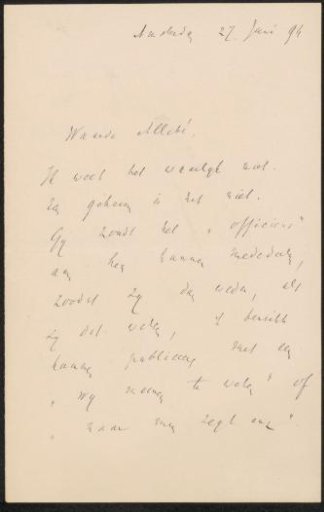 Amsterdam 27. Juni 94
Waarde Allebé,
Ik weet het waarlijk niet.
Een geheim is het niet.
Gij zoudt het „officieus"
aan hen kunnen mededeelen,
zoodat zij dan weten, als
zij dit weten, 't bericht
kunnen publiceeren met een
„wij meenen te weten" of
„naar men zegt enz".